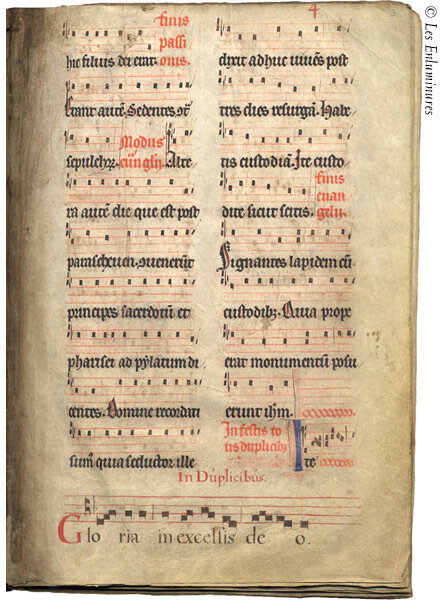 finis
passi
hic filius dei erat. onis.
Erant autē. Sedentes
Modus
sepulchrȝ. euāglij Alte
ra autē die que est post
parasceuen. ɔuenerūt
principes sacerdotū et
pharisei ad pylatum di
centes. Domine recordati
sumꝰ quia seductor ille
4
dixit adhuc viuēs post
tres dies resurgā. Iube
custodiā. Ite custo
finis
dite sicut scitis. euan
gelij.
Signantes lapidem cū
custodibȝ. Quia prope
erat monumentū posu
erunt ihm̄.
In festis to
tis duplicibȝ Ite
In Duplicibus.
Glo ria in excelsis de o.
© Les Enluminures